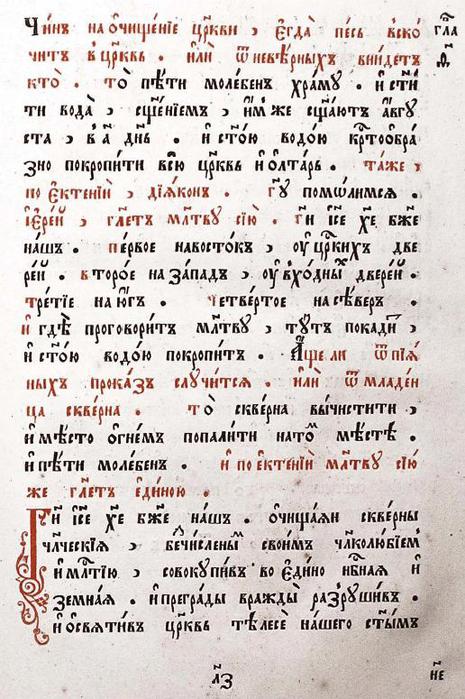 Чи́нъ на ѡ҆чище́нїе цр҃кви , є҆гда̀ пе́съ вско́ гла
читъ в̾ цр҃квь . и҆лѝ ѿ невѣ́рныхъ вни́детъ
кто̀ . то̀ пѣ́ти моле́бенъ хра́мꙋ . и҆ ст҃и́
ти вода̀ , сщ҃е́нїемъ , и҆́мже сщ҃а́ютъ а҆́вгꙋ
ста , в̾ а҃ дн҃ь . и҆ ст҃о́ю водо́ю крⷭ҇тоѻбра́
зно покропи́ти всю̀ цр҃ковь и҆ ѻ҆лта́рь . та́же ,
по є҆ктенїѝ , дїѧ́конъ . гдⷭ҇ꙋ помо́лимсѧ .
і҆ере́й , гл҃етъ мл҃твꙋ сїю̀ . гдⷭ҇и і҆с҃е хрⷭ҇те бж҃е
на́шъ . пе́рвое навосто́къ , ᲂу҆ цр҃кихъ две
ре́й . второ́е на за́падъ , ᲂу҆ вхо́дныⷯ двере́й .
тре́тїе на ю҆́гъ . четве́ртое на сѣ́веръ .
и҆ гдѣ̀ проговори́тъ мл҃твꙋ , тꙋ́тъ покади́тъ ,
и҆ ст҃о́ю водо́ю покропи́тъ . А҆́ще ли ѿ пїѧ́
ныхъ прока́зъ слꙋчи́тсѧ . и҆лѝ ѿ младе́н
ца скве́рна . то̀ скве́рна вы́чистити ,
и҆ мѣ́сто ѻ҆гне́мъ попали́ти на то́мъ мѣ́стѣ .
и҆ пѣ́ти моле́бенъ . и҆ по є҆ктенїѝ мл҃твꙋ сїю́
же гл҃етъ є҆ди́ною .
Гдⷭ҇и і҆с҃е хрⷭ҇те бж҃е на́шъ . ѡ҆чища́ѧи скве́рны
чл҃ческїѧ , бещи́сленыⷨ свои́мъ чл҃колю́бїемъ
и҆ млⷭ҇тїю , совокꙋпи́въ во є҆ди́но нбⷭ҇наѧ и҆
земна́ѧ . и҆ прегра́ды вражды̀ разрꙋши́въ .
и҆ ѡ҆свѧти́въ цр҃ковь тѣлесѐ на́шего ст҃ы́мъ